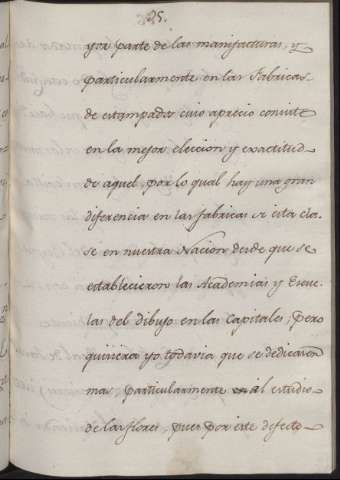 25.
yor parte de las manifacturas, y
particularmente en las Fabricas
de estampados cuio aprecio consiste
en la mejor eleccion y exactitud
de aquel, por lo qual hay una gran
diferencia en las fabricas de esta cla-
se en nuestra Nacion desde que se
establecieron las Academias y Escue-
las del dibujo en las Capitales; pero
quisiera yo todavia que se dedicaran
mas, particularmente al estudio
de las flores, pues por este defecto